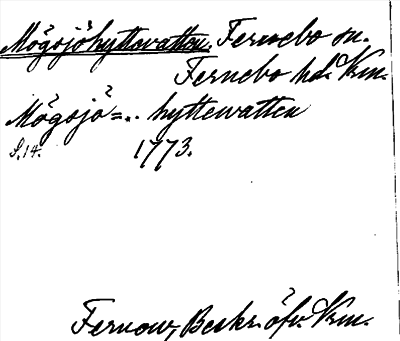 Mögsjöhyttevatten, Fernebo sn.
Fernebo hd. Vrm.
Mögsjö=.. hyttewatten
S. 14. 1773.
Fernow, Beskr. öfv. Vrm.